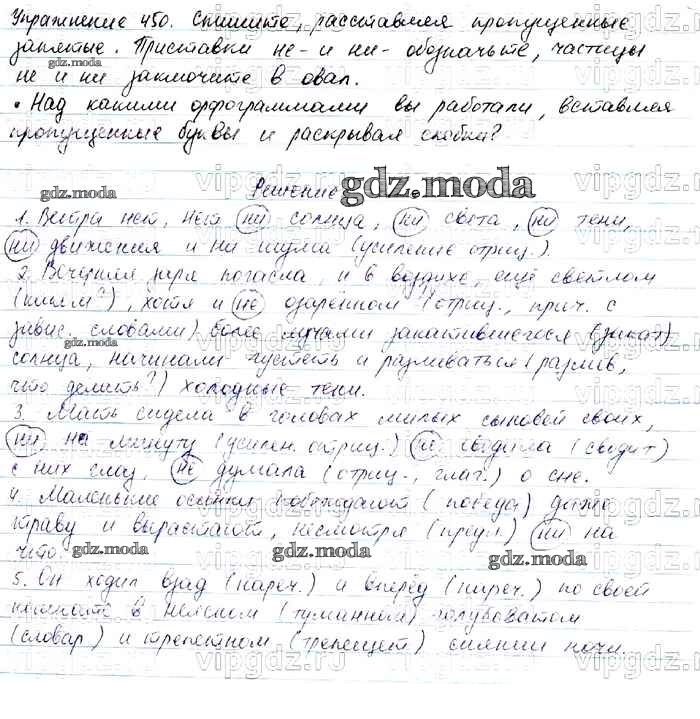 Упражнение 450. Спишите, расставляя пропущенные
запятые. Приставки не- и ни- обозначьте, частицы
gdz.moda
не и ни заключите в овал.
• Над какими орфограммами вы работали, вставляя
пропущенные буквы и раскрывая скобки?
gdz.moda Решение gdz.moda
1. Ветра нет, нет ни солнца, ни света, ни тени,
ни движения и ни шума (усиление отриц.).
2. Вечерняя заря погасла, и в воздухе, ещё светлом
(каком?), хотя и не озарённом (отриц., прич. с
завис. словами) более лучами закатившегося (закат)
gdz.moda
солнца, начинали густеть и разливаться (разлив,
что делать?) холодные тени.
3. Мать сидела в головах милых сыновей своих,
ни на минуту (усилен. отриц.) не сводила (сводит)
с них глаз, не думала (отриц., глаг.) о сне.
4. Маленькие осинки побеждают (победа) даже
траву и вырастают, несмотря (предл.) ни на
что. gdz.moda gdz.moda gdz.moda
5. Он ходил взад (нареч.) и вперёд (нареч.) по своей
комнате в неясном (туманном) голубоватом
(словар) и трепетном (трепещет) сиянии ночи.
vipgdz.ru